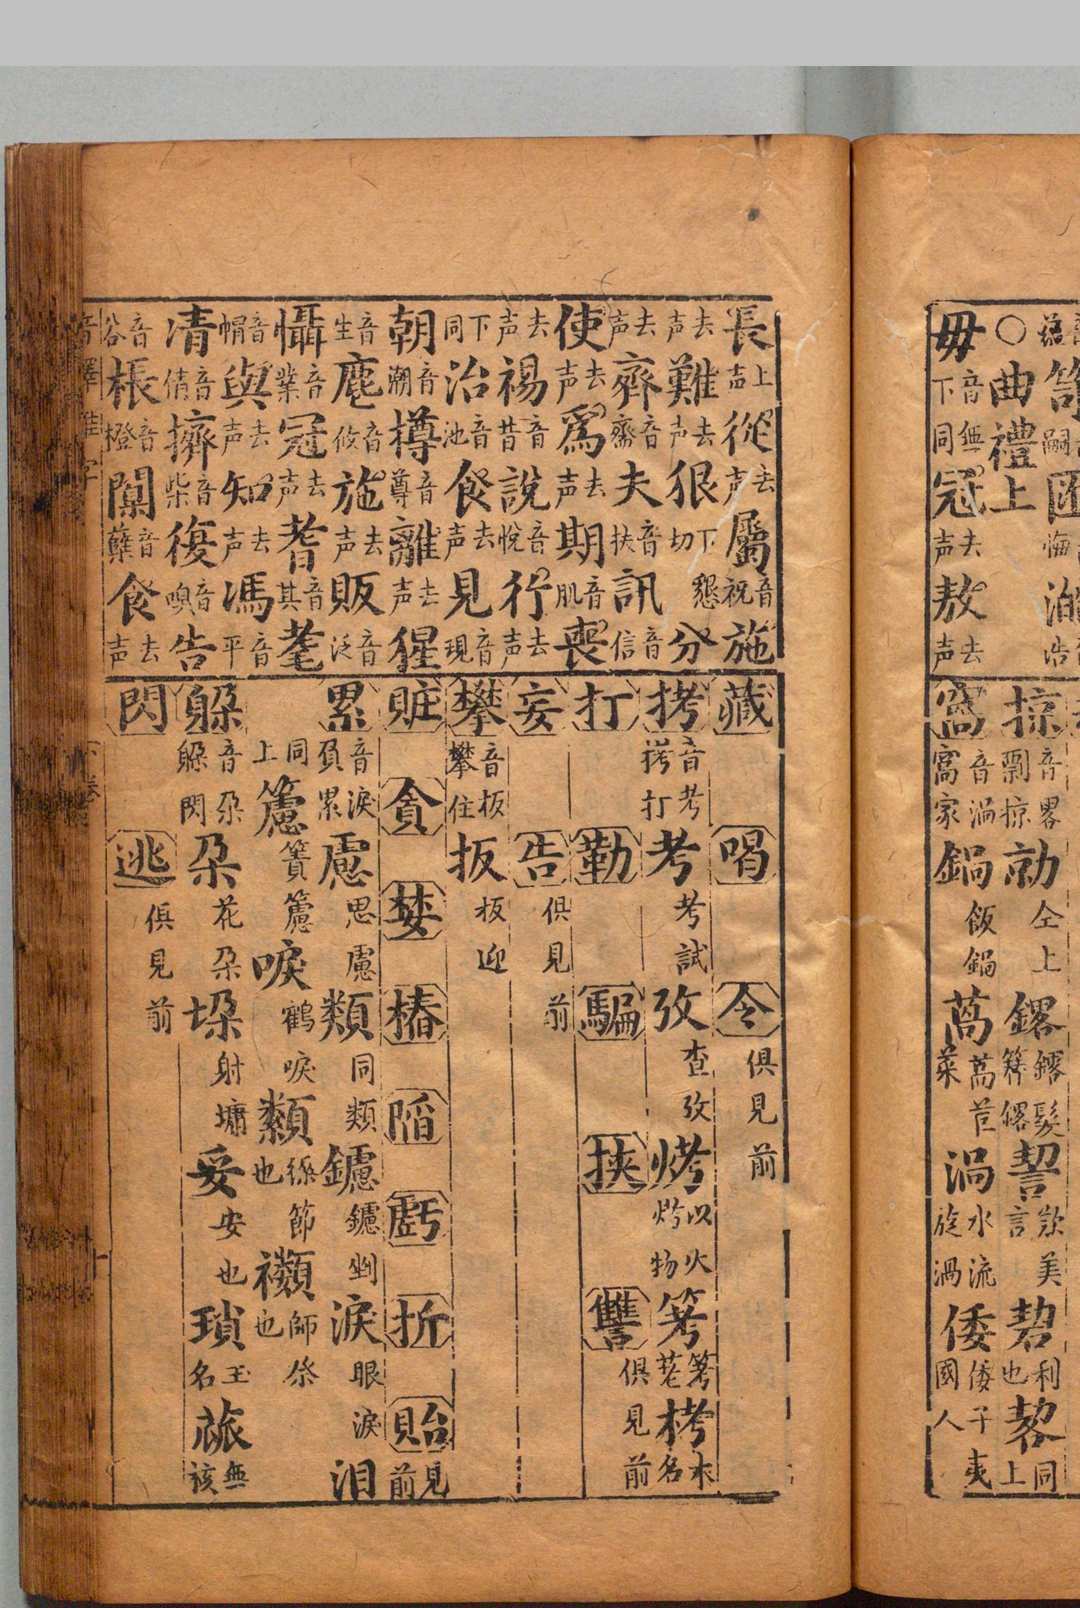 毋音無下同冠去声敖去声
〇曲禮上
長上声從去声屬音祝施
去声難去声狠下懇切分
去声齊音齋夫音扶訊音信
使去声爲去声期音肌喪
去声裼音昔說音悅行去声
下同治音池食去声見音現
朝音潮樽音尊離去声猩
音生麀音攸施去声販音泛
懾音業冠去声耆音其耄
音帽與去声知去声馮音平
清音倩擠音柴復音嗅告
音谷棖音橙闑音蘖食去声
掠音畧剽掠
窩音渦窩家鍋飯鍋萵萵苣菜渦水流旋渦倭倭子夷國人
藏喝令俱見前
拷音考拷打考考試攷查攷烤以火物栲木名
打勒騙挾讐俱見前
妄告俱見前
攀音扳攀住扳扳迎
賍貪婪樁陷虧折貽見前
累音淚負累慮思慮類同類鑢鑢剉淚眼淚泪
同上籚唳鶴唳纇絲節也禷師祭也
躲音朵躲閃朵花朵垛射墉妥安也瑣玉名
閃逃俱見前